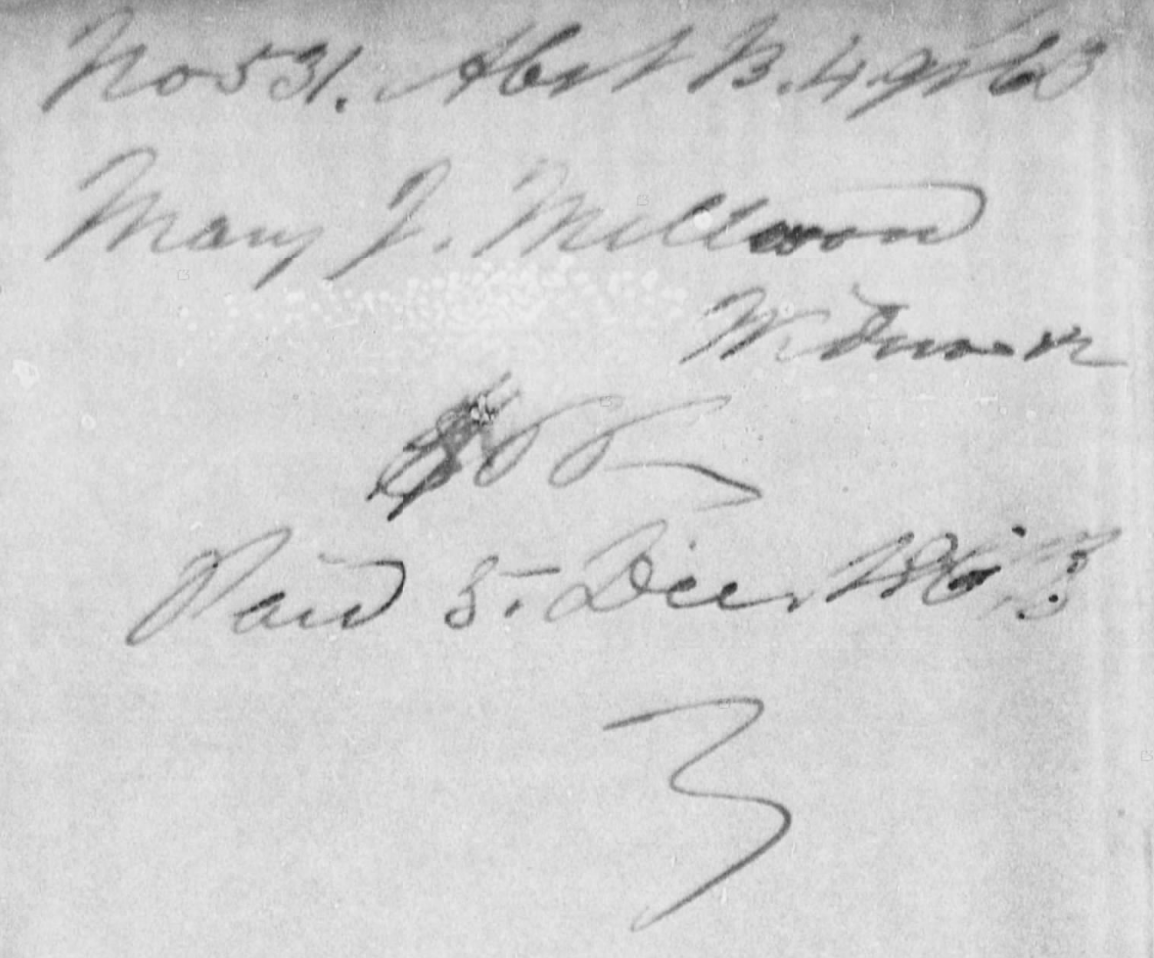 No 531. Abst B. 4 qr 63
Mary J. Millwood
Widow
Paid 5. Dec. 1863
3